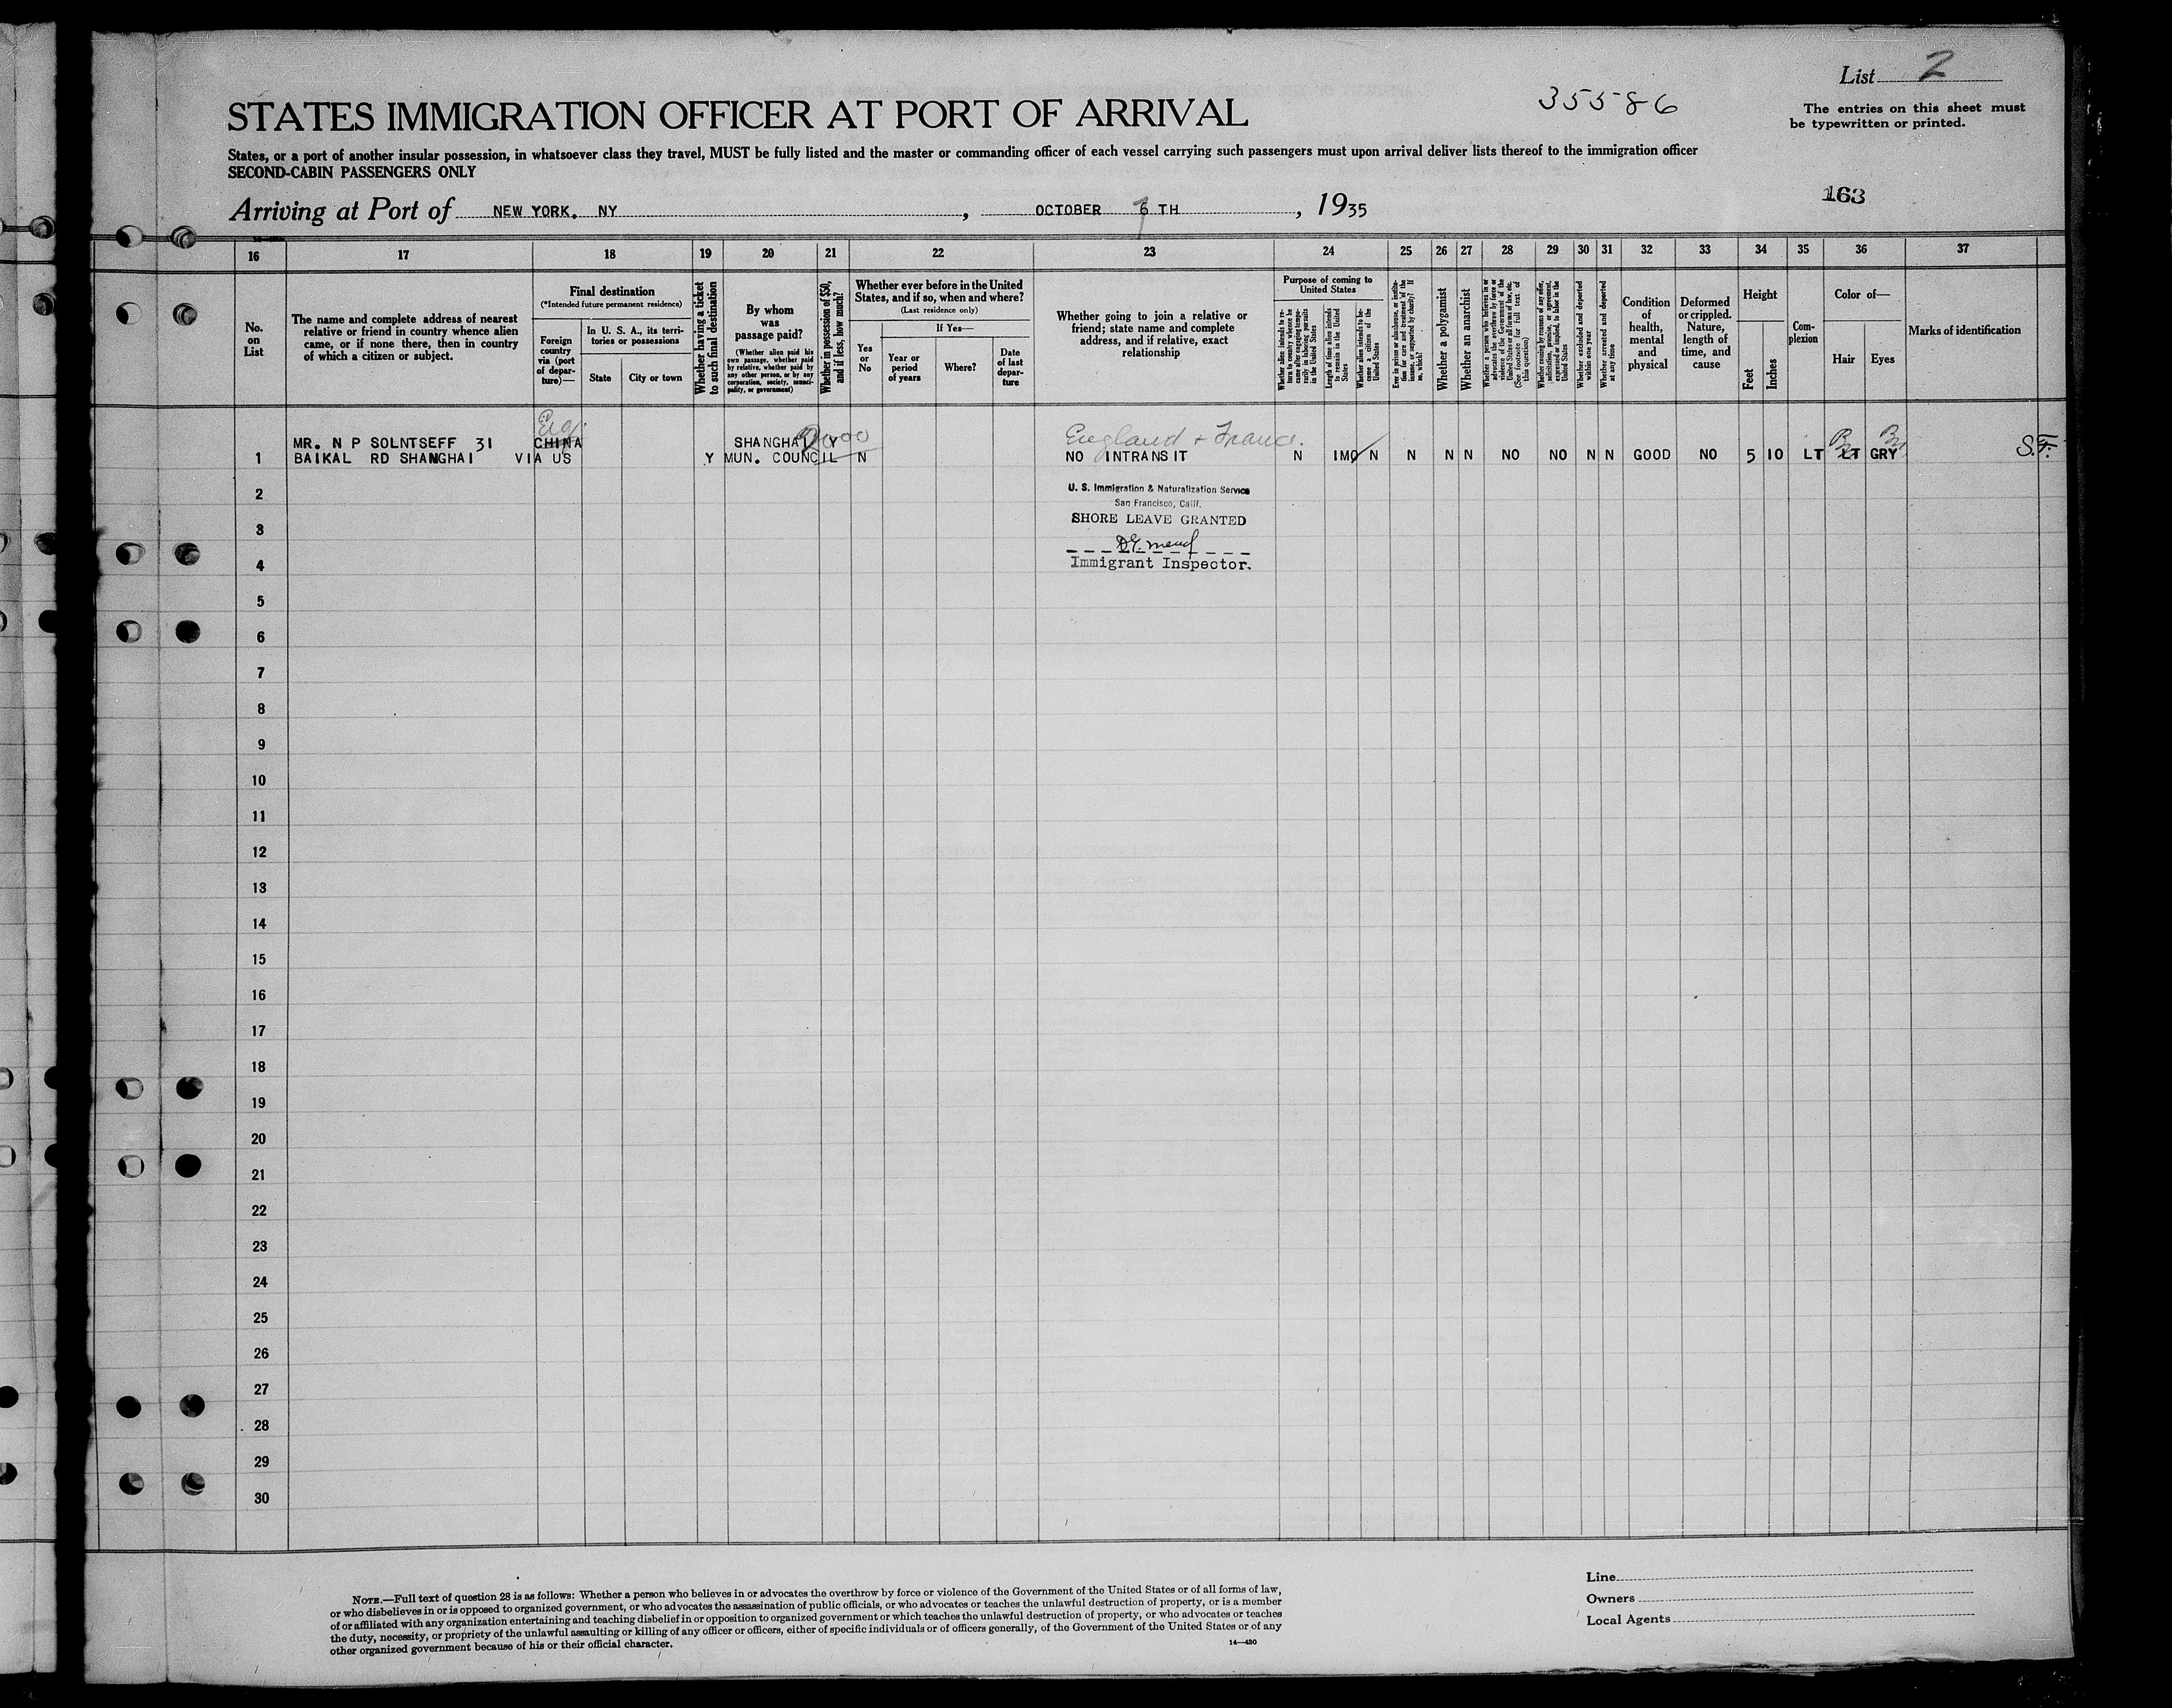 List 2
35586
The entries on this sheet must
be typewritten or printed.
STATES IMMIGRATION OFFICER AT PORT OF ARRIVAL
States, or a port of another insular possession, in whatsoever class they travel, MUST be fully listed and the master or commanding officer of each vessel carrying such passengers must upon arrival deliver lists thereof to the immigration officer
SECOND-CABIN PASSENGERS ONLY
163
Arriving at Port of NEW YORK. NY, OCTOBER 6 TH, 1935
16 17 18 19 20 21 22 23 24 25 26 27 28 29 30 31 32 33 34 35 36 37
No.
on
List
The name and complete address of nearest
relative or friend in country whence alien
came, or if none there, then in country
of which a citizen or subject.
Final destination
(*Intended future permanent residence)
Foreign
country
via (port
of depar-
ture)—
In U. S. A., its terri-
tories or possessions
State
City or town
Whether having a ticket
to such final destination
By whom
was
passage paid?
(Whether alien paid his
own passage, whether paid
by relative, whether paid by
any other person, or by any
corporation, society, munici-
pality, or government)
Whether in possession of $50,
and if less, how much?
Whether ever before in the United
States, and if so, when and where?
(Last residence only)
Yes
or
No
If Yes—
Year or
period
of years
Where?
Date
of last
depar-
ture
Whether going to join a relative or
friend; state name and complete
address, and if relative, exact
relationship
Purpose of coming to
United States
Whether alien intends to re-
turn to country whence he
came after engaging tempo-
rarily in laboring pursuits
in the United States
Length of time alien intends
to remain in the United
States
Whether alien intends to be-
come a citizen of the
United States
Ever in prison or almshouse, or institu-
tion for care and treatment of the
insane, or supported by charity? If
so, which?
Whether a polygamist
Whether an anarchist
Whether a person who believes in or
advocates the overthrow by force or
violence of the Government of the
United States or all forms of law, etc.
(See footnote for full text of
this question)
Whether coming by reason of any offer,
solicitation, promise, or agreement,
expressed or implied, to labor in the
United States
Whether excluded and deported
within one year
Whether arrested and deported
at any time
Condition
of
health,
mental
and
physical
Deformed
or crippled.
Nature,
length of
time, and
cause
Height
Feet
Inches
Com-
plexion
Color of—
Hair
Eyes
Marks of identification
Eng.
England + France.
MR. N P SOLNTSEFF 31 CHINA SHANGHAI Y
1 BAIKAL RD SHANGHAI VIA US Y MUN. COUNCIL N NO INTRANSIT N IMO N N N N NO NO N N GOOD NO 5 10 LT LT GRY S.F.
2
U. S. Immigration & Naturalization Service
San Francisco, Calif.
3 SHORE LEAVE GRANTED
4 Immigrant Inspector.
5
6
7
8
9
10
11
12
13
14
15
16
17
18
19
20
21
22
23
24
25
26
27
28
29
30
NOTE.—Full text of question 28 is as follows: Whether a person who believes in or advocates the overthrow by force or violence of the Government of the United States or of all forms of law,
or who disbelieves in or is opposed to organized government, or who advocates the assassination of public officials, or who advocates or teaches the unlawful destruction of property, or is a member
of or affiliated with any organization entertaining and teaching disbelief in or opposition to organized government or which teaches the unlawful destruction of property, or who advocates or teaches
the duty, necessity, or propriety of the unlawful assaulting or killing of any officer or officers, either of specific individuals or of officers generally, of the Government of the United States or of any
other organized government because of his or their official character.
14—480
Line
Owners
Local Agents